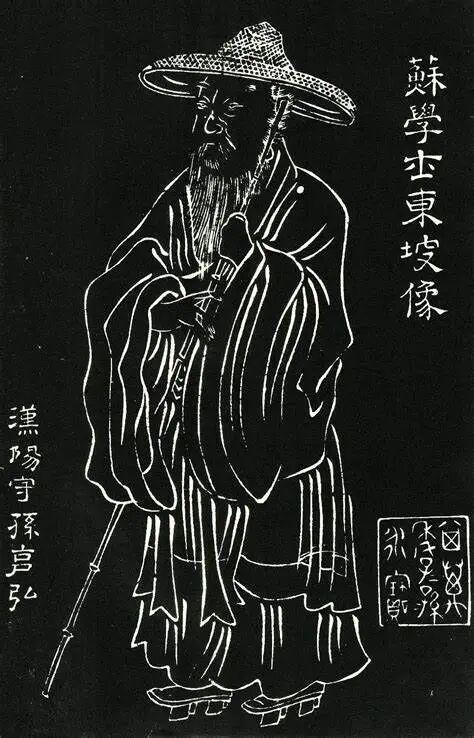 蘇學士東坡像
漢陽守孫弘
永寶